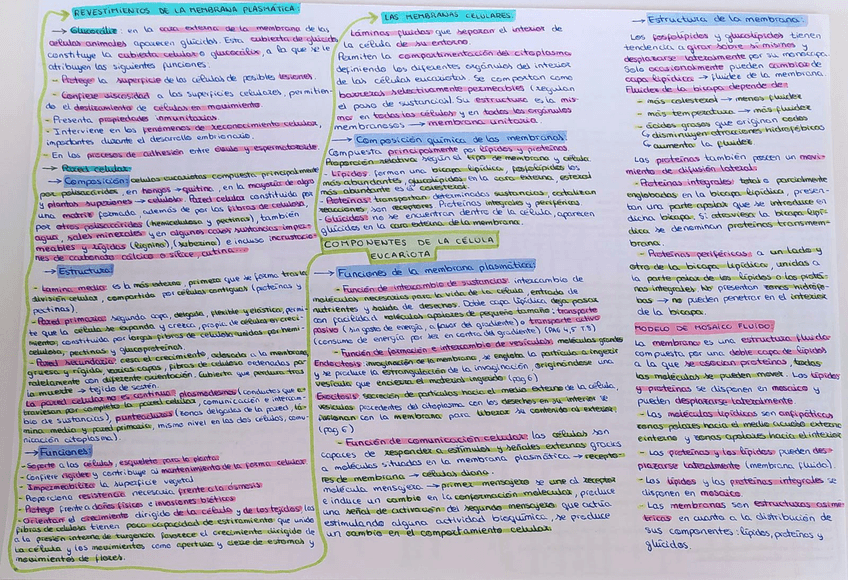 REVESTIMIENTOS DE LA MEMBRANA PLASMÁTICA:
→ Glucocálix: en la cara externa de la membrana de las
células animales aparecen glúcidos. Esta cubierta de glúcidos
constituye la cubierta celular o glucocálix, a la que se le
atribuyen las siguientes funciones:
- Protege la superficie de las células de posibles lesiones.
- Confiere viscosidad a las superficies celulares, permitien-
do el deslizamiento de células en movimiento.
- Presenta propiedades inmunitarias.
- Interviene en los fenómenos de reconocimiento celular,
importantes durante el desarrollo embrionario.
- En los procesos de adhesión entre óvulo y espermatozoide.
→ Pared celular:
→ Composición: células eucariotas compuesta principalmente
por polisacáridos, en hongos → quitina, en la mayoría de algas
y plantas superiores → celulosa. Pared celular constituida por
una matriz formada, además de por las fibras de celulosa,
por otros polisacáridos (hemicelulosa y pectinas), también
agua, sales minerales y en algunos casos sustancias imper-
meables y rígidas (lignina), (suberina) e incluso incrustacio-
nes de carbonato cálcico o sílice, cutina...
→ Estructura:
- Lámina media: es la más externa, primera que se forma tras la
división celular, compartida por células contiguas (proteínas y
pectinas).
- Pared primaria: segunda capa, delgada, flexible y elástica, permi-
te que la célula se expanda y crezca, propia de células en creci-
miento; constituida por largas fibras de celulosa unidas por hemi-
celulosa, pectinas y glucoproteínas
- Pared secundaria: cesa el crecimiento, adosada a la membrana,
gruesa y rígida, varias capas, fibras de celulosa ordenadas pa-
ralelamente con diferente orientación. Cubierta que perdura tras
la muerte → tejido de sostén.
La pared celular no es continua: plasmodesmos (conductos que a-
traviesan por completo la pared celular, comunicación e intercam-
bio de sustancias), punteaduras (zonas delgadas de la pared, lá-
mina media y pared primaria, mismo nivel en las dos células, comu-
nicación citoplasma).
→ Funciones:
- Soporte a las células, esqueleto para la planta
- Confiere rigidez y contribuye al mantenimiento de la forma celular
- Impermeabiliza la superficie vegetal
- Proporciona resistencia necesaria frente a la ósmosis
- Protege frente a daños físicos e invasiones bióticas
- Orientan el crecimiento dirigido de la célula y de los tejidos: las
fibras de celulosa tienen poca capacidad de estiramiento que unido
a la presión interna de turgencia favorece el crecimiento dirigido de
la célula y los movimientos como apertura y cierre de estomas y
movimientos de flores.
LAS MEMBRANAS CELULARES:
Láminas fluidas que separan el interior de
la célula de su entorno.
Permiten la compartimentación del citoplasma
definiendo los diferentes orgánulos del interior
de las células eucariotas. Se comportan como
barreras selectivamente permeables (regulan
el paso de sustancias). Su estructura es la mis-
ma en todas las células y en todos los orgánulos
membranosos → membrana unitaria.
→ Composición química de las membranas:
Compuesta principalmente por lípidos y proteínas.
Proporción relativa según el tipo de membrana y célula.
- Lípidos: forman una bicapa lipídica, fosfolípidos los
más abundantes, glucolípidos en la cara externa, esterol
más abundante es el colesterol.
- Proteínas: transportan determinadas sustancias, catalizan
reacciones, son receptores. Proteínas integrales y periféricas
- Glúcidos: no se encuentran dentro de la célula, aparecen
glúcidos en la cara externa de la membrana.
COMPONENTES DE LA CÉLULA
EUCARIOTA
→ Funciones de la membrana plasmática:
- Función de intercambio de sustancias: intercambio de
moléculas necesarias para la vida de la célula, entrada de
nutrientes y salida de desechos. Doble capa lipídica deja pasar
con facilidad moléculas apolares de pequeño tamaño: transporte
pasivo (sin gasto de energía, a favor del gradiente) o transporte activo
(consume de energía por ser en contra del gradiente) (PAG 4,5 T.8)
- Función de formación e intercambio de vesículas: moléculas grandes
Endocitosis: invaginación de la membrana, se engloba la partícula a ingerir
y se produce la estrangulación de la invaginación, originándose una
vesícula que encierra el material ingerido (pag 6)
Exocitosis: secreción de partículas hacia el medio externo de la célula,
vesículas procedentes del citoplasma con los desechos en su interior se
fusionan con la membrana para liberar su contenido al exterior.
(pag 6)
- Función de comunicación celular: las células son
capaces de responder a estímulos y señales externas gracias
a moléculas situadas en la membrana plasmática → recepto-
res de membrana → células diana.
molécula mensajera → primer mensajero se une al receptor
e induce un cambio en la conformación molecular, produce
una señal de activación del segundo mensajero que actúa
estimulando alguna actividad bioquímica, se produce
un cambio en el comportamiento celular.
→ Estructura de la membrana:
Los fosfolípidos y glucolípidos tienen
tendencia a girar sobre sí mismos y
desplazarse lateralmente por su monocapa.
Solo ocasionalmente pueden cambiar de
capa lipídica → fluidez de la membrana.
Fluidez de la bicapa depende de:
- más colesterol → menos fluidez
- más temperatura → más fluidez
- ácidos grasos que originan codos
↳ disminuyen atracciones hidrofóbicas
↳ aumenta la fluidez
Las proteínas también poseen un movi-
miento de difusión lateral.
- Proteínas integrales: total o parcialmente
englobadas en la bicapa lipídica, presen-
tan una parte apolar que se introduce en
dicha bicapa. Si atraviesa la bicapa lipí-
dica se denominan proteínas transmem-
brana.
- Proteínas periféricas: a un lado y
otro de la bicapa lipídica, unidas a
la parte polar de los lípidos o las proteí-
nas integrales. No presentan zonas hidrófo-
bas → no pueden penetrar en el interior
de la bicapa.
MODELO DE MOSAICO FLUIDO:
La membrana es una estructura fluida
compuesta por una doble capa de lípidos
a la que se asocian proteínas, todas
las moléculas se pueden mover. Los lípidos
y proteínas se disponen en mosaico y
pueden desplazarse lateralmente.
- Las moléculas lipídicas son anfipáticas
zonas polares hacia el medio acuoso externo
e interno y zonas apolares hacia el interior
- Las proteínas y los lípidos pueden des-
plazarse lateralmente (membrana fluida).
- Los lípidos y las proteínas integrales se
disponen en mosaico.
- Las membranas son estructuras asimé-
tricas en cuanto a la distribución de
sus componentes: lípidos, proteínas y
glúcidos.